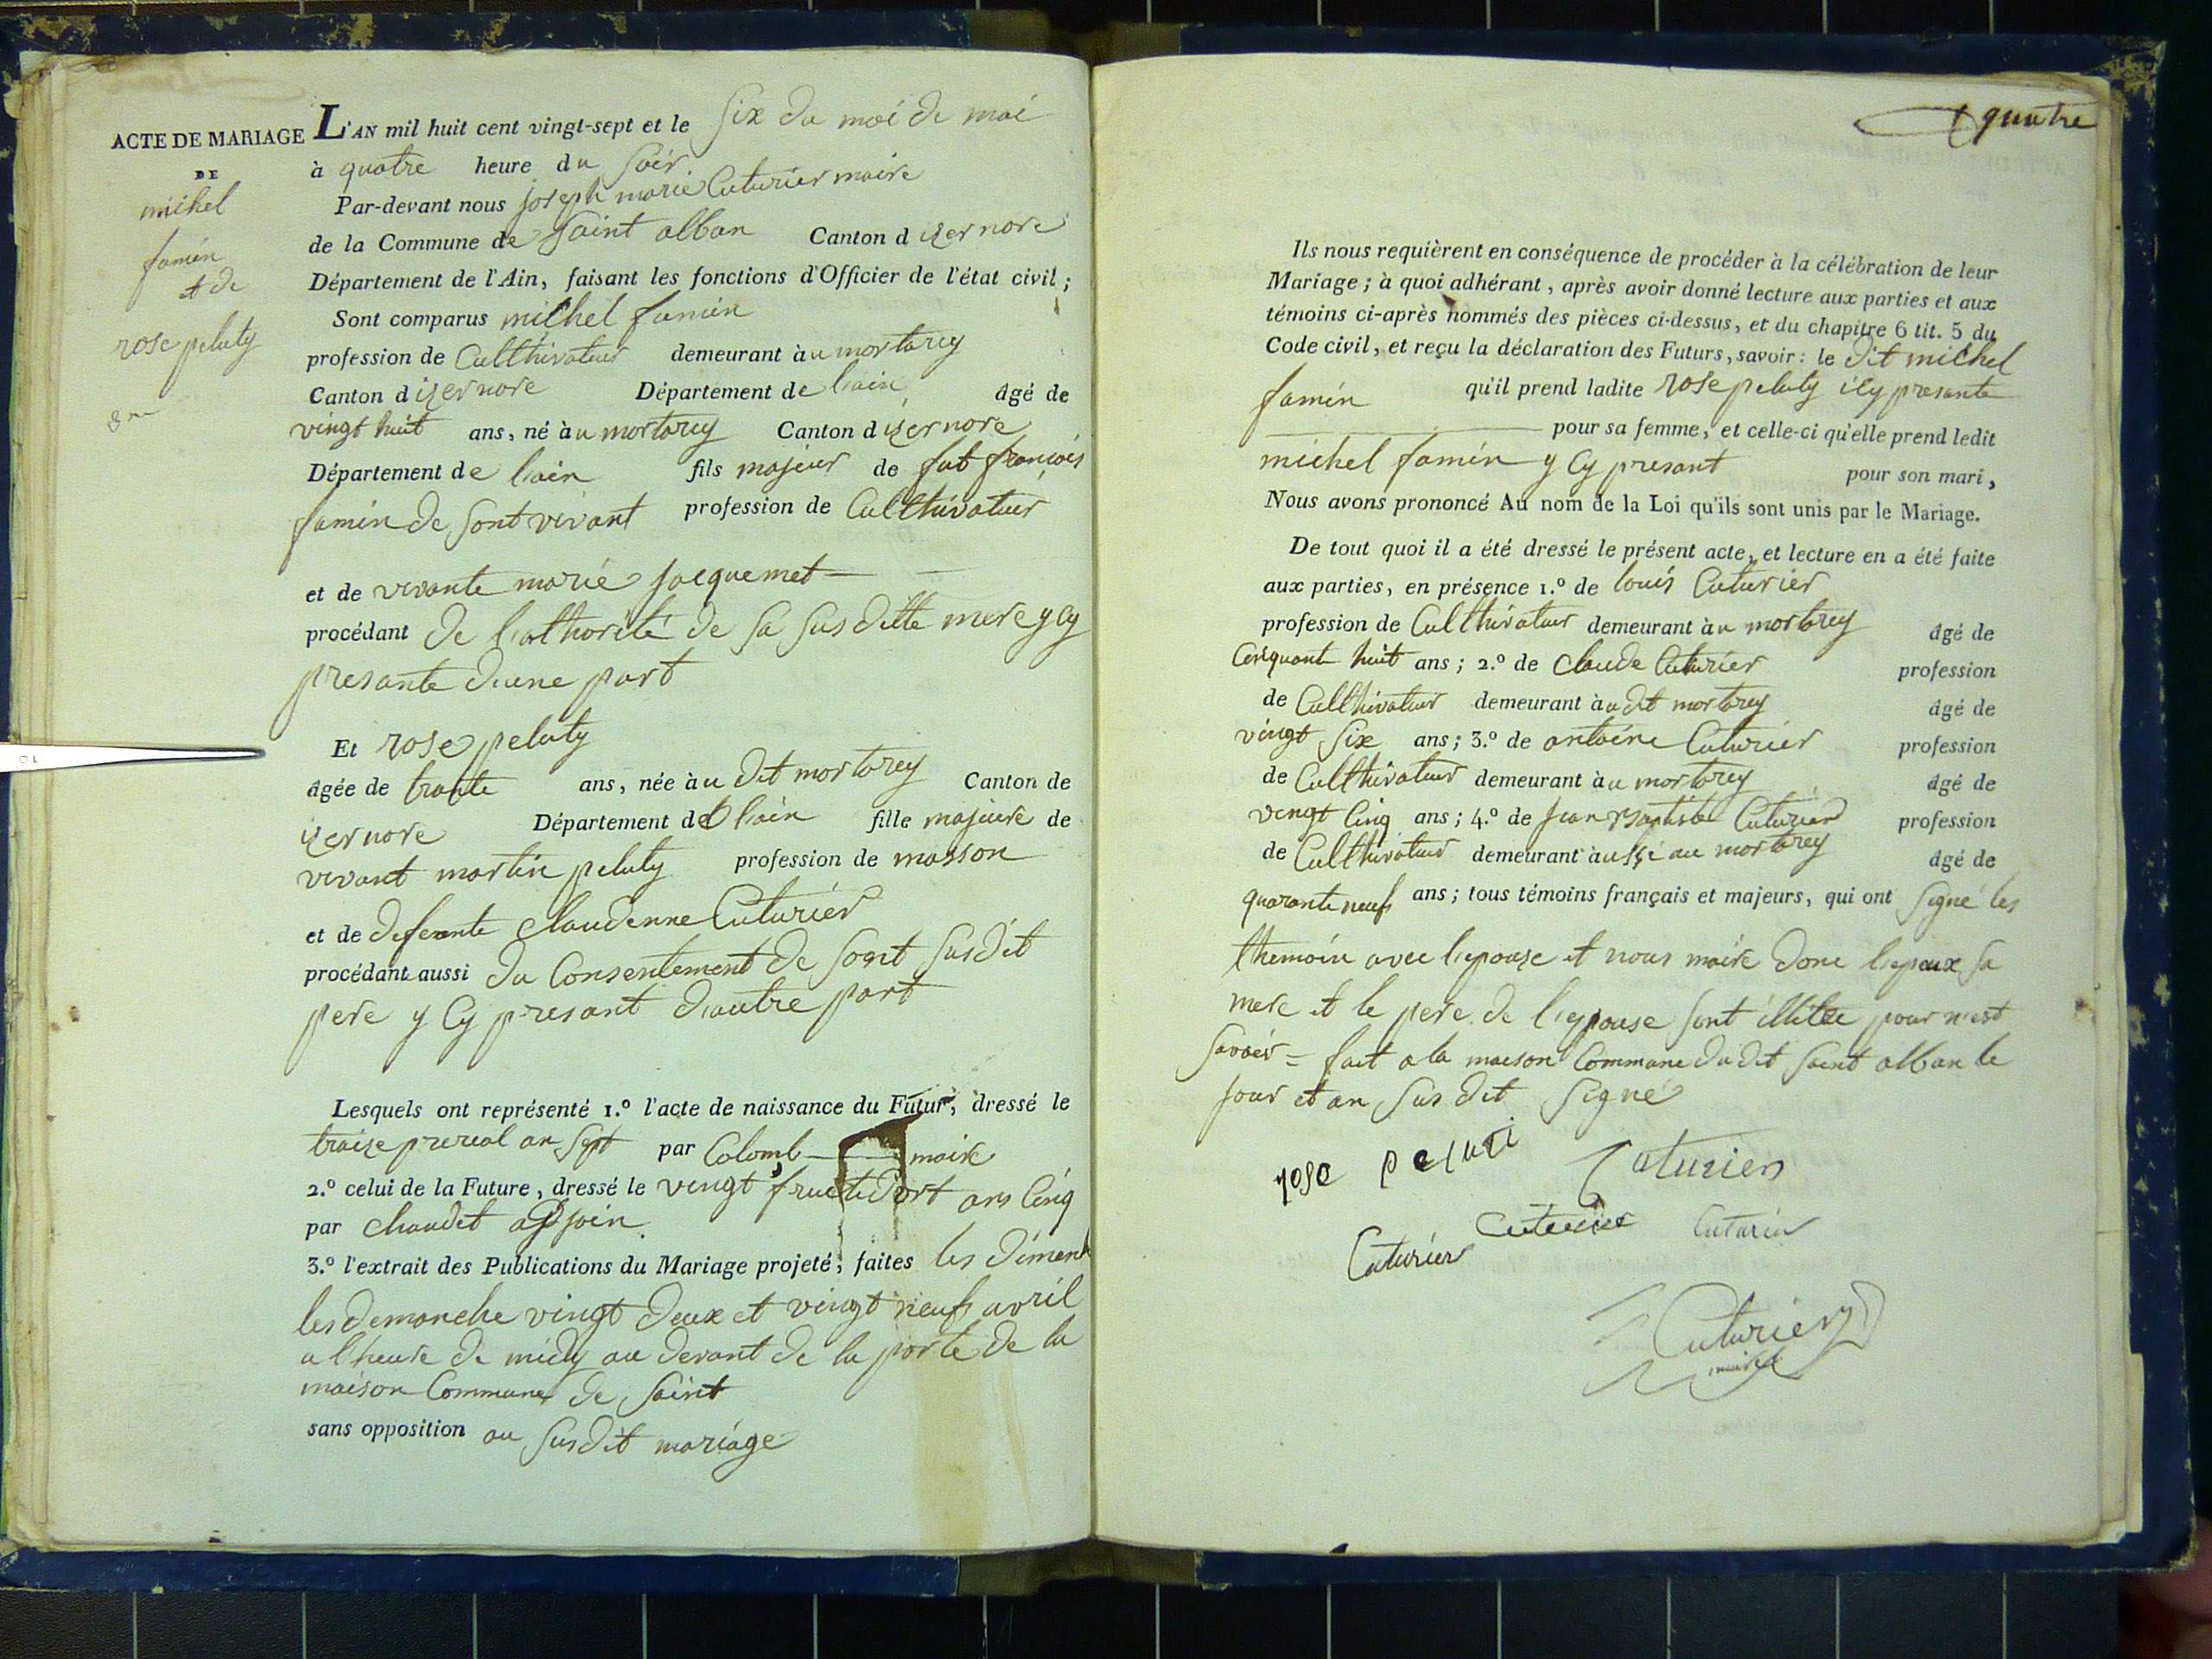 ACTE DE MARIAGE
DE
michel
famin
et de
rose peluty
L'AN mil huit cent vingt-sept et le Six du moi de mai
à quatre heure du Soir
Par-devant nous joseph marie Cuturier maire
de la Commune de Saint alban Canton d izernore
Département de l'Ain, faisant les fonctions d'Officier de l'état civil ;
Sont comparus michel famin
profession de Cullthivateur demeurant àu mortarey
Canton d izernore Département de l'ain âgé de
vingt huit ans, né àu mortarey Canton d izernore
Département de l'ain fils majeur de fut francois
famin de Sont vivant profession de Cullthivateur
et de vivante marie jacquemet
procédant de l'athorité de Sa Susditte mere y Cy
presante d'une part
Et rose peluty
âgée de trante ans, née àu dit mortarey Canton de
izernore Département de l'ain fille majeure de
vivant martin peluty profession de masson
et de defeunte claudenne Cuturier
procédant aussi du Consentement de Sont Susdit
pere y Cy presant d'autre part
Lesquels ont représenté 1.º l'acte de naissance du Futur, dressé le
traize prereal an Sept par Colomb maire
2.º celui de la Future, dressé le vingt fructidort ans Cinq
par chaudet adjoin
3.º l'extrait des Publications du Mariage projeté, faites les dimen
les demanche vingt deux et vingt neufs avril
a l'heure de midy au devant de la porte de la
maison Commune de Saint
sans opposition au Susdit mariage
quatre
Ils nous requièrent en conséquence de procéder à la célébration de leur
Mariage ; à quoi adhérant, après avoir donné lecture aux parties et aux
témoins ci-après nommés des pièces ci-dessus, et du chapitre 6 tit. 5 du
Code civil, et reçu la déclaration des Futurs, savoir : le dit michel
famin qu'il prend ladite rose peluty icy presante
pour sa femme, et celle-ci qu'elle prend ledit
michel famin y Cy presant pour son mari,
Nous avons prononcé Au nom de la Loi qu'ils sont unis par le Mariage.
De tout quoi il a été dressé le présent acte, et lecture en a été faite
aux parties, en présence 1.º de louis Cuturier
profession de Cullthivateur demeurant àu mortarey âgé de
Cenquant huit ans ; 2.º de claude Cuturier profession
de Cullthivateur demeurant àudit mortarey âgé de
vingt Six ans ; 3.º de antoine Cuturier profession
de Cullthivateur demeurant àu mortarey âgé de
vingt Cinq ans ; 4.º de jean Baptiste Cuturier profession
de Cullthivateur demeurant àussi au mortarey âgé de
quarante neufs ans ; tous témoins français et majeurs, qui ont Signé les
themoin avec l'epouse et nous maire donc l'epoux Sa
mere et le pere de l'epouse Sont illitée pour n'est
Savoir = fait a la maison Commune dudit Saint alban le
jour et an Susdit Signé
rose peluti Cuturier
Cuturier Cuturier
Cuturier
Cuturier
maire